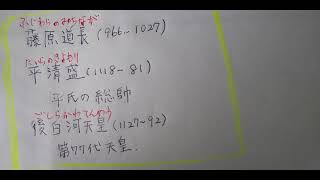 ふじわらのみちなが
藤原道長(966~1027)
たいらのきよもり
平清盛(1118~81)
平氏の総帥
ごしらかわてんのう
後白河天皇(1127~92)
第77代天皇.